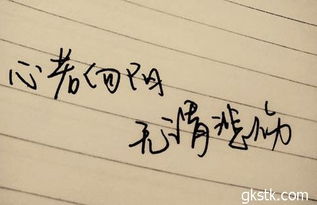 心若向阳
无谓悲伤
gkstk.com